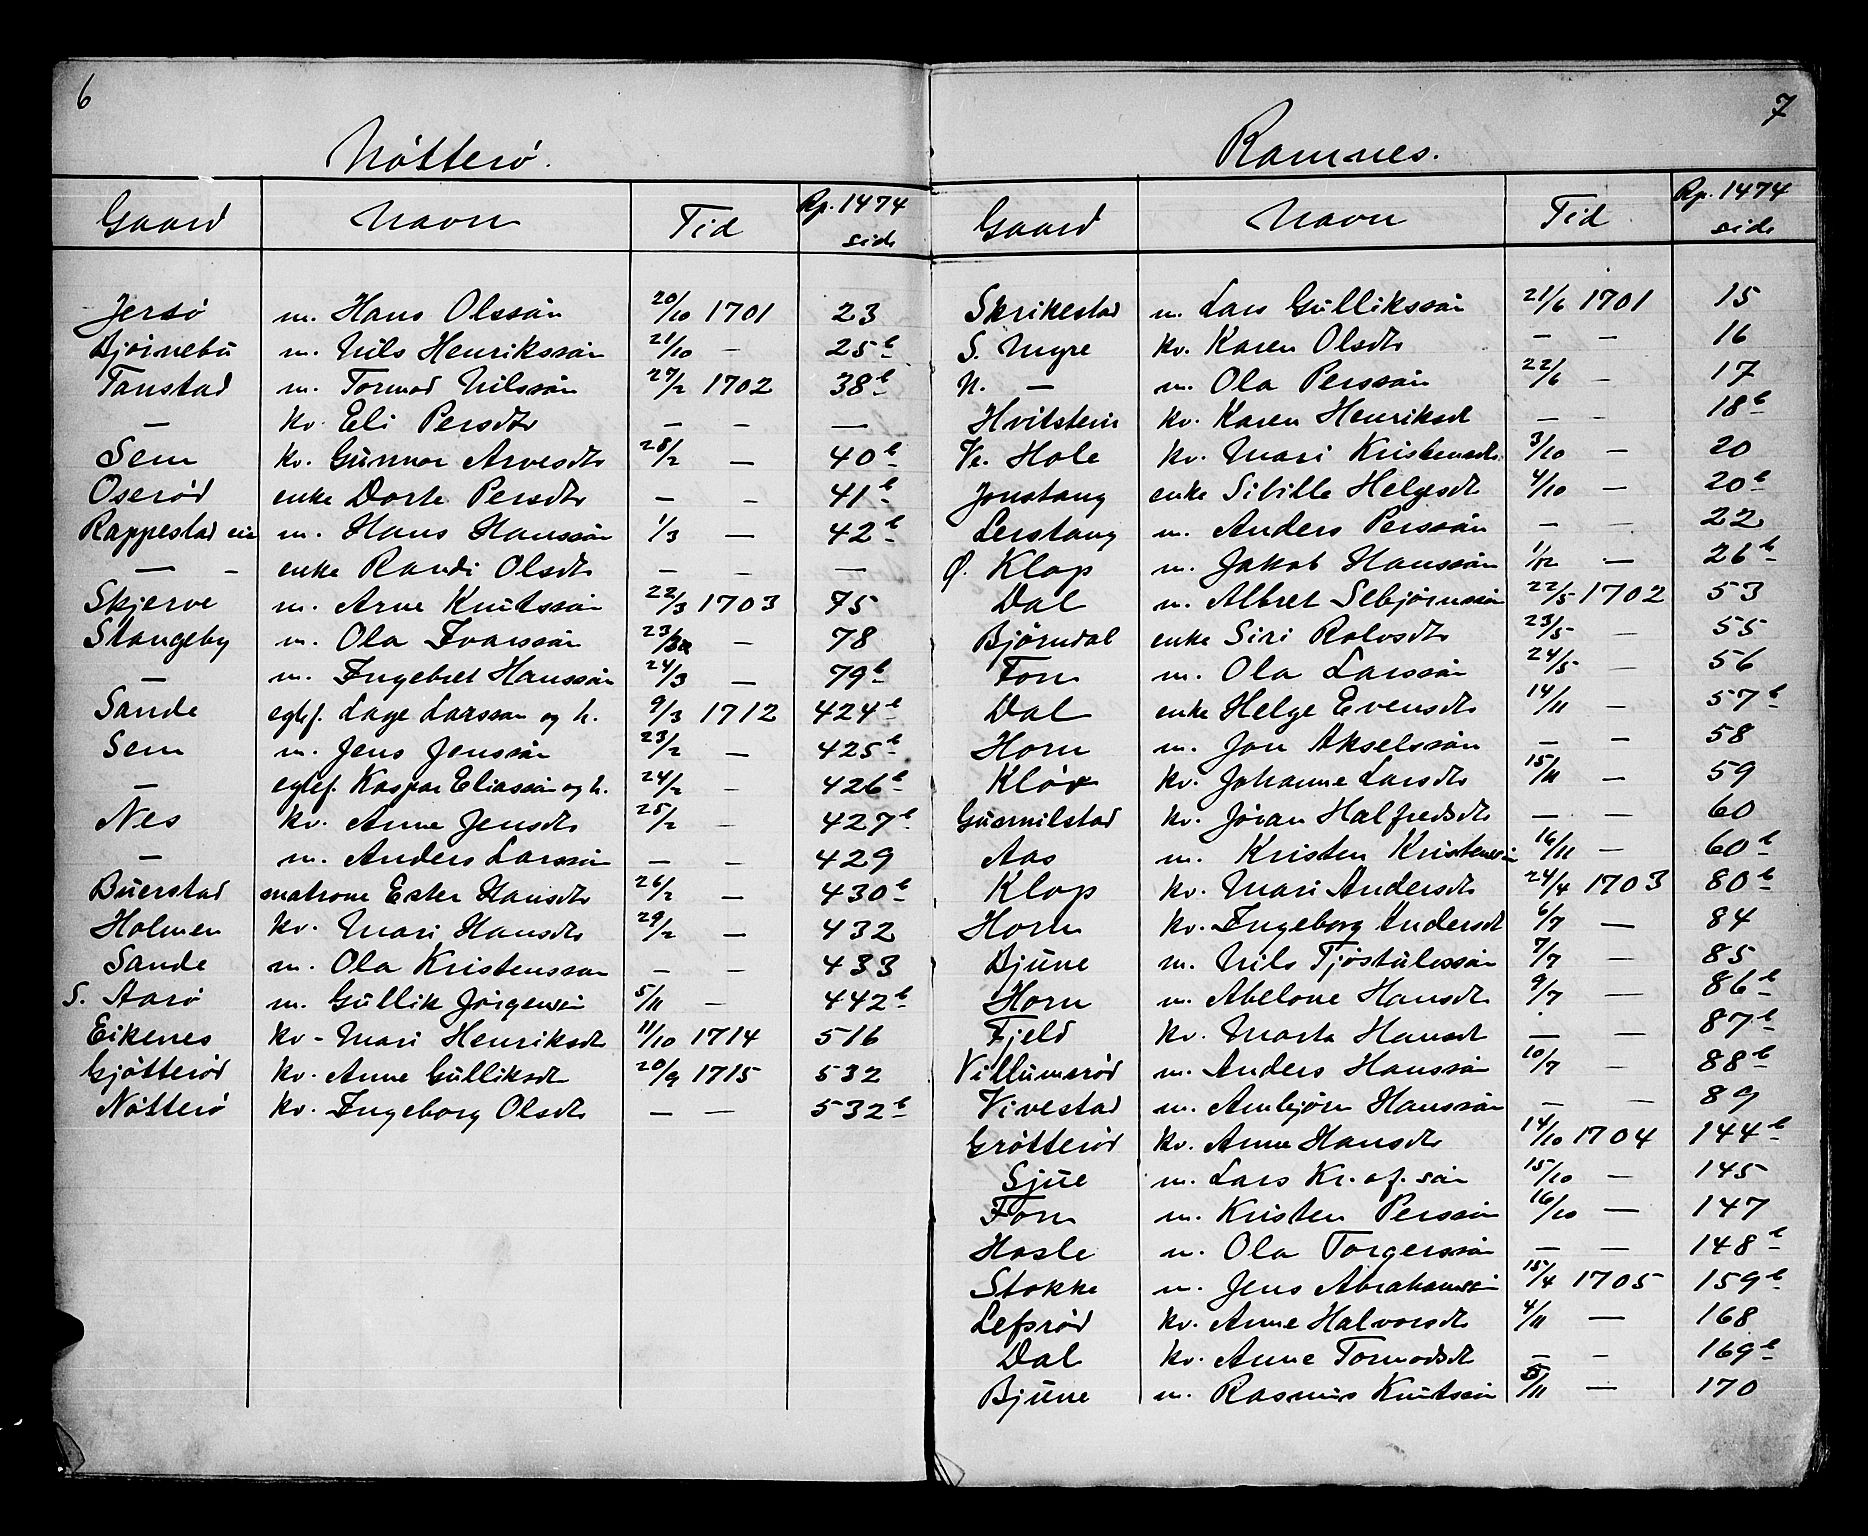 6
Nötterö.
Gaard Navn Tid Rp. 1474 side
Jersö m. Hans Olssön 20/10 1701 23
Bjørnebu m. Nils Henrikssön 21/10 — 25b
Tanstad m. Tormod Nilssön 27/2 1702 38b
— kv. Eli Persdtr — — —
Sem kv. Gunnor Arvesdtr 28/2 — 40b
Oserød enke Dorte Persdtr — — 41b
Rappestad eie m. Hans Hanssön 1/3 — 42b
— - enke Randi Olsdtr — — —
Skjerve m. Arne Knutssön 22/3 1703 75
Stangeby m. Ola Ivarssön 23/3 — 78
— m. Ingebret Hanssön 24/3 — 79b
Sande eglf. Lage Larsson og h. 9/3 1712 424b
Sem m. Jens Jenssön 23/2 — 425b
— eglef. Kaspar Eliassön og h. 24/2 - 426b
Nes kv. Anne Jensdtr 25/2 - 427b
— m. Anders Larssön — — 429
Buerstad matrone Ester Hansdtr 26/2 — 430b
Holmen kv. Mari Hansdtr 29/2 — 432
Sande m. Ola Kristensson — — 433
S. Aarö m. Gullik Jörgenssön 5/11 — 442b
Eikenes kv. Mari Henriksdtr 11/10 1714 516
Gjötteröd kv. Anne Gulliksdtr 20/9 1715 532
Nötterö kv. Ingeborg Olsdtr — — 532b
7
Ramnes.
Gaard Navn Tid Rp. 1474 side
Skrikestad m. Lars Gullikssön 21/6 1701 15
S. Myre kv. Karen Olsdtr — — 16
N. — m. Ola Perssön 22/6 - 17
Hvitstein kv. Karen Henriksdt — — 18b
Ve. Hole kv. Mari Kristensdtr 3/10 — 20
Jonstang enke Sibille Helgesdt 4/10 — 20b
Lerstang m. Anders Perssön — — 22
Ø. Klop m. Jakob Hanssön 1/12 — 26b
Dal m. Albret Sebjörnssön 22/5 1702 53
Björndal enke Siri Rolvsdtr 23/5 — 55
Forn m. Ola Larssön 24/5 - 56
Dal enke Helge Evensdtr 14/11 — 57b
Horn m. Jon Akselssön — — 58
Klöv kv. Johanne Larsdtr 15/11 — 59
Gunnilstad kv. Jöran Halfredsdtr — — 60
Aas m. Kristen Kristenssön 16/11 — 60b
Klop kv. Mari Andersdtr 24/4 1703 80b
Horn kv. Ingeborg Andersdt 6/7 — 84
Bjune m. Nils Tjöstulvssön 7/7 — 85
Horn m. Abelone Hansdtr 9/7 — 86b
Fjeld kv. Marta Hansdt — — 87b
Villumsröd m. Anders Hanssön 10/7 — 88b
Vivestad m. Arnbjörn Hanssön — — 89
Grötteröd kv. Anne Hansdtr 14/10 1704 144b
Sjue m. Lars Kr.of.sön 15/10 — 145
Forn m. Kristen Perssön 16/10 — 147
Hasle m. Ola Torgerssön — — 148b
Stokke m. Jens Abrahamssön 15/4 1705 159b
Lefsröd kv. Anne Halvorsdtr 4/11 — 168
Dal kv. Anne Tormodsdt — - 169b
Bjune m. Rasmus Knutssön 5/11 — 170